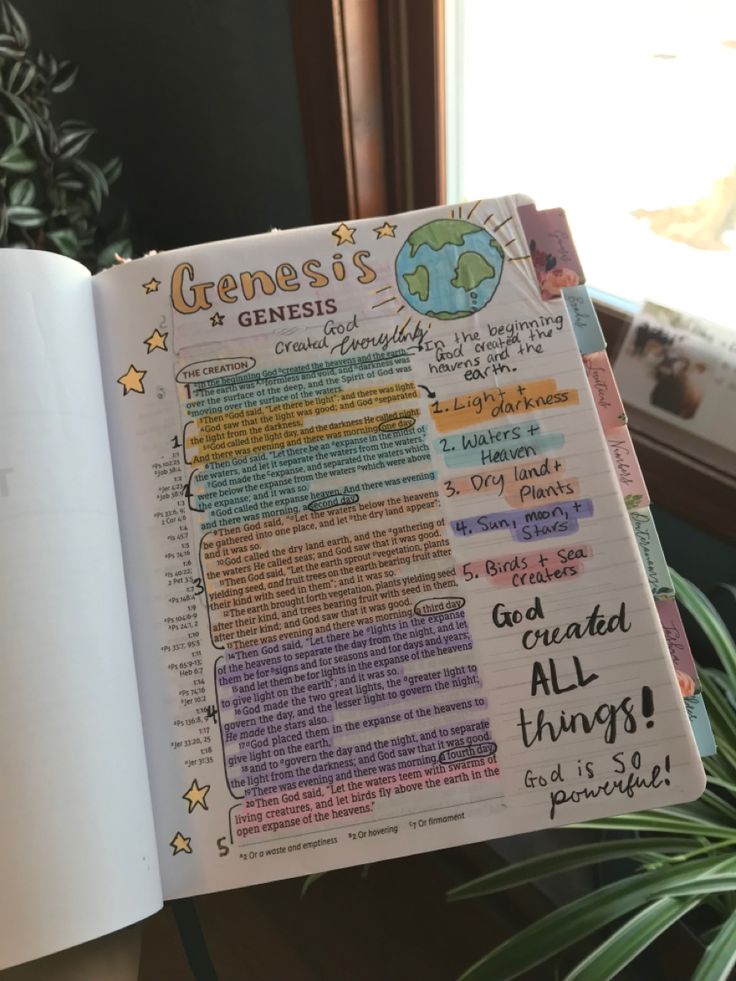 Genesis
GENESIS
God
created everything
THE CREATION
1 In the beginning God created the heavens and the earth.
2The earth was formless and void, and darkness was
over the surface of the deep, and the Spirit of God was
moving over the surface of the waters.
3Then God said, "Let there be light"; and there was light.
4God saw that the light was good; and God separated
the light from the darkness.
5God called the light day, and the darkness He called night.
And there was evening and there was morning, one day.
6Then God said, "Let there be an expanse in the midst of
the waters, and let it separate the waters from the waters."
7God made the expanse, and separated the waters which
were below the expanse from the waters which were above
the expanse; and it was so.
8God called the expanse heaven. And there was evening
and there was morning, a second day.
9Then God said, "Let the waters below the heavens
be gathered into one place, and let the dry land appear";
and it was so.
10God called the dry land earth, and the gathering of
the waters He called seas; and God saw that it was good.
11Then God said, "Let the earth sprout vegetation, plants
yielding seed, and fruit trees on the earth bearing fruit after
their kind with seed in them"; and it was so.
12The earth brought forth vegetation, plants yielding seed
after their kind, and trees bearing fruit with seed in them,
after their kind; and God saw that it was good.
13There was evening and there was morning, a third day.
14Then God said, "Let there be lights in the expanse
of the heavens to separate the day from the night, and let
them be for signs and for seasons and for days and years;
15and let them be for lights in the expanse of the heavens
to give light on the earth"; and it was so.
16God made the two great lights, the greater light to
govern the day, and the lesser light to govern the night;
He made the stars also.
17God placed them in the expanse of the heavens to
give light on the earth,
18and to govern the day and the night, and to separate
the light from the darkness; and God saw that it was good.
19There was evening and there was morning, a fourth day.
20Then God said, "Let the waters teem with swarms of
living creatures, and let birds fly above the earth in the
open expanse of the heavens."
a2 Or a waste and emptiness b2 Or hovering c7 Or firmament
1
2
3
4
5
In the beginning
God created the
heavens and the
earth.
1. Light +
darkness
2. Waters +
Heaven
3. Dry land +
Plants
4. Sun, moon, +
Stars
5. Birds + Sea
creaters
God
created
ALL
things!
God is so
powerful!
Genesis
Exodus
Leviticus
Numbers
Deuteronomy
Joshua